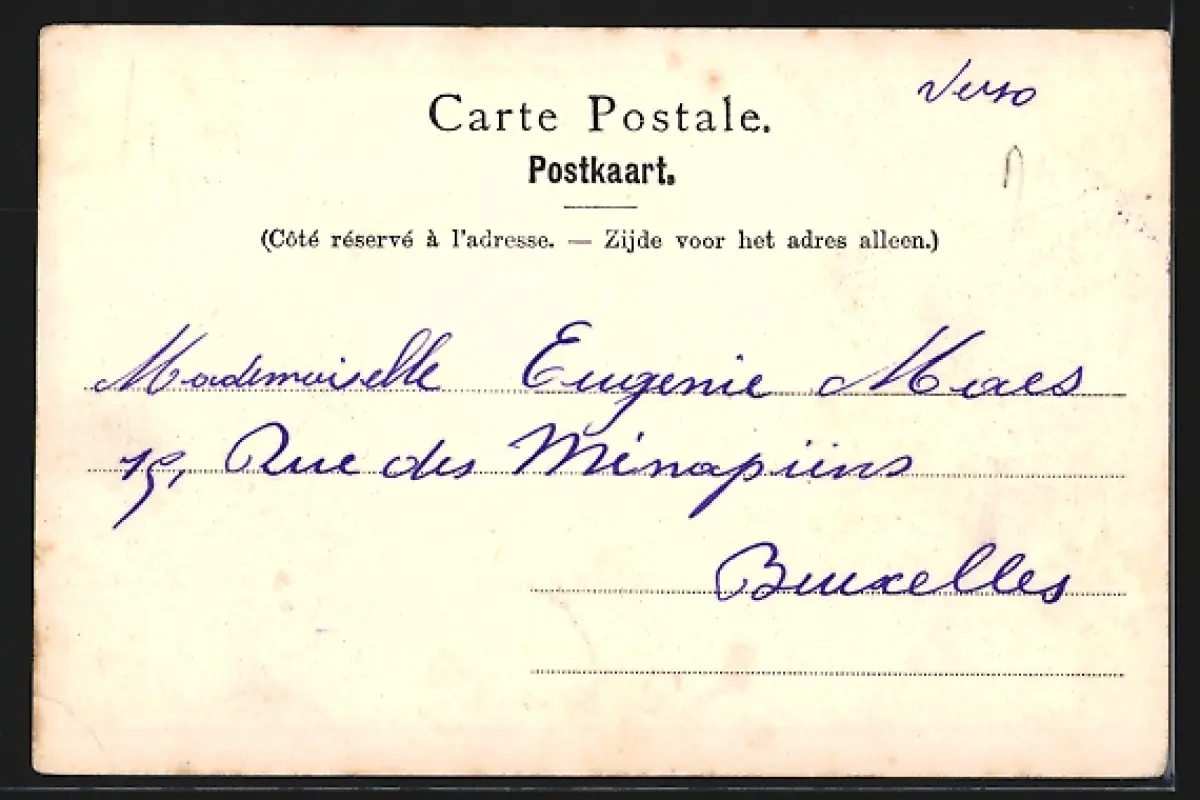 Verso
Carte Postale.
Postkaart.
(Côté réservé à l'adresse. — Zijde voor het adres alleen.)
Mademoiselle Eugenie Maes
15, Rue des Ménapiens
Bruxelles